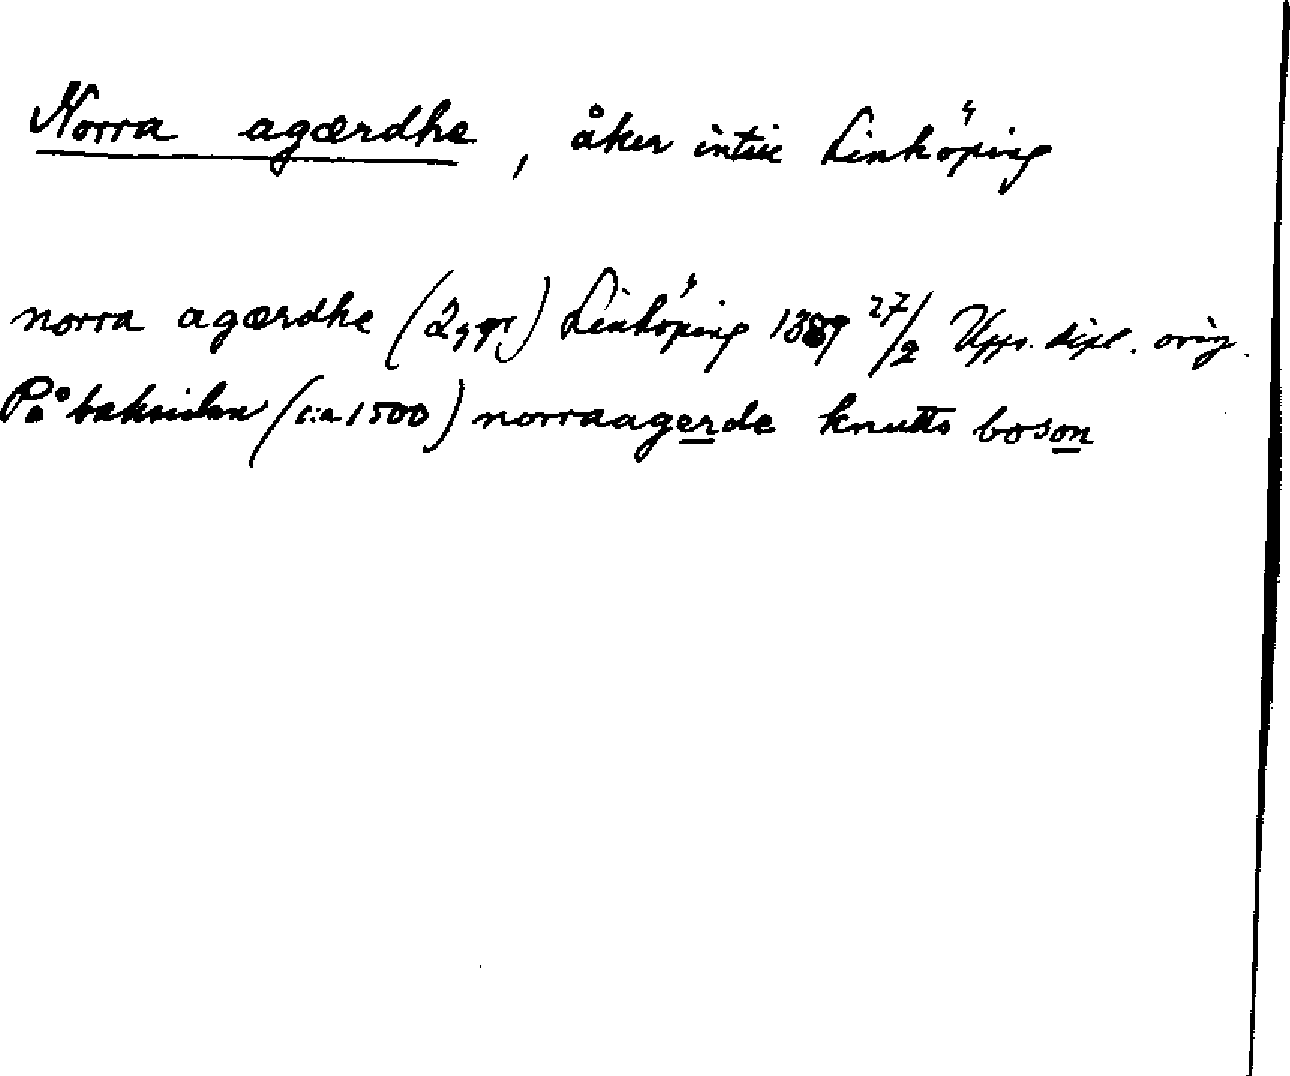 Norra agærdhe, åker intill Linköping
norra agærdhe (2 ggr) Linköping 1389 27/2 Upps. dipl. orig.
På baksidan (c:a 1500) norraagerde knutts boson